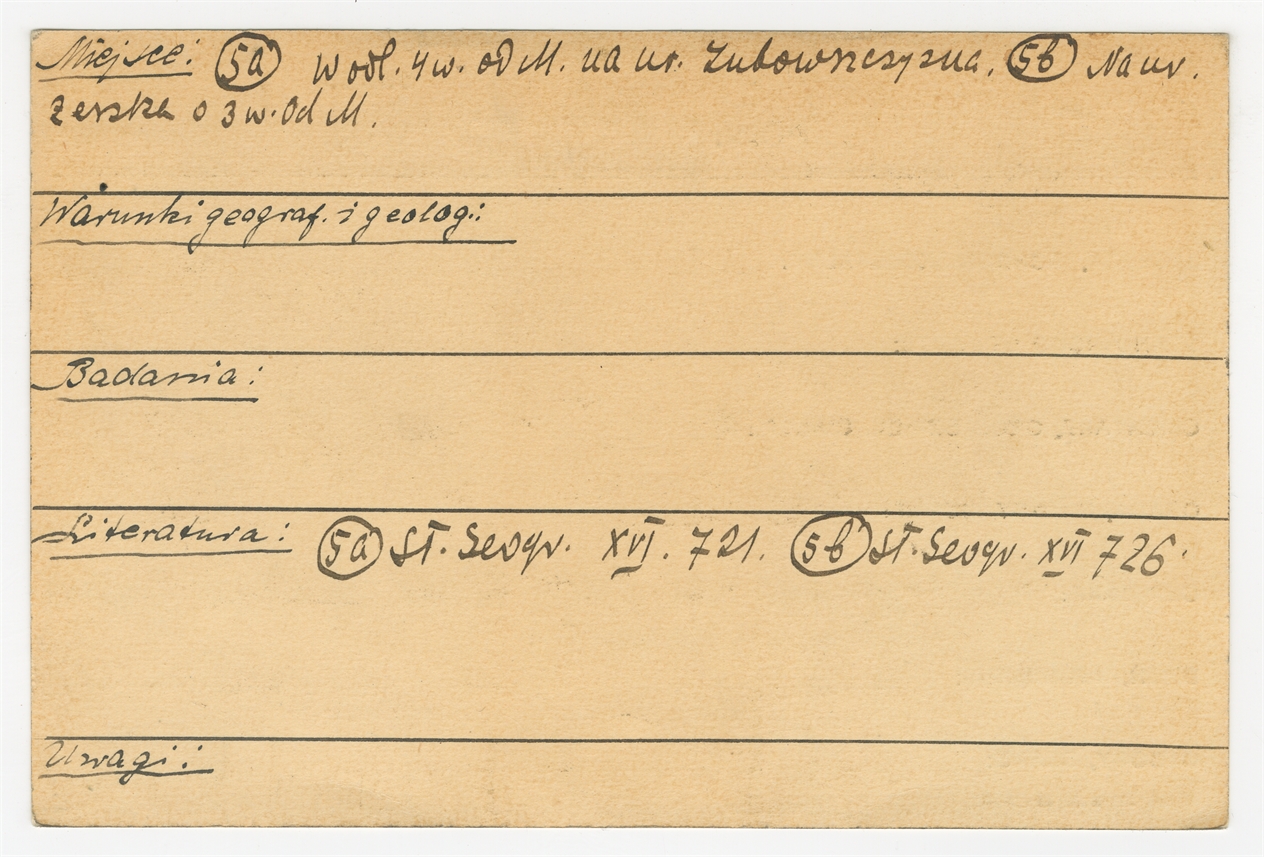 Miejsce: 5a W odl. 4 w. od M. na ur. Zubowszczyzna. 5b Na ur.
Zerszka o 3 w. Od M.
Warunki geograf. i geolog.:
Badania:
Literatura: 5a Sł. Geogr. XVI. 721. 5b Sł. Geogr. XVI 726.
Uwagi: